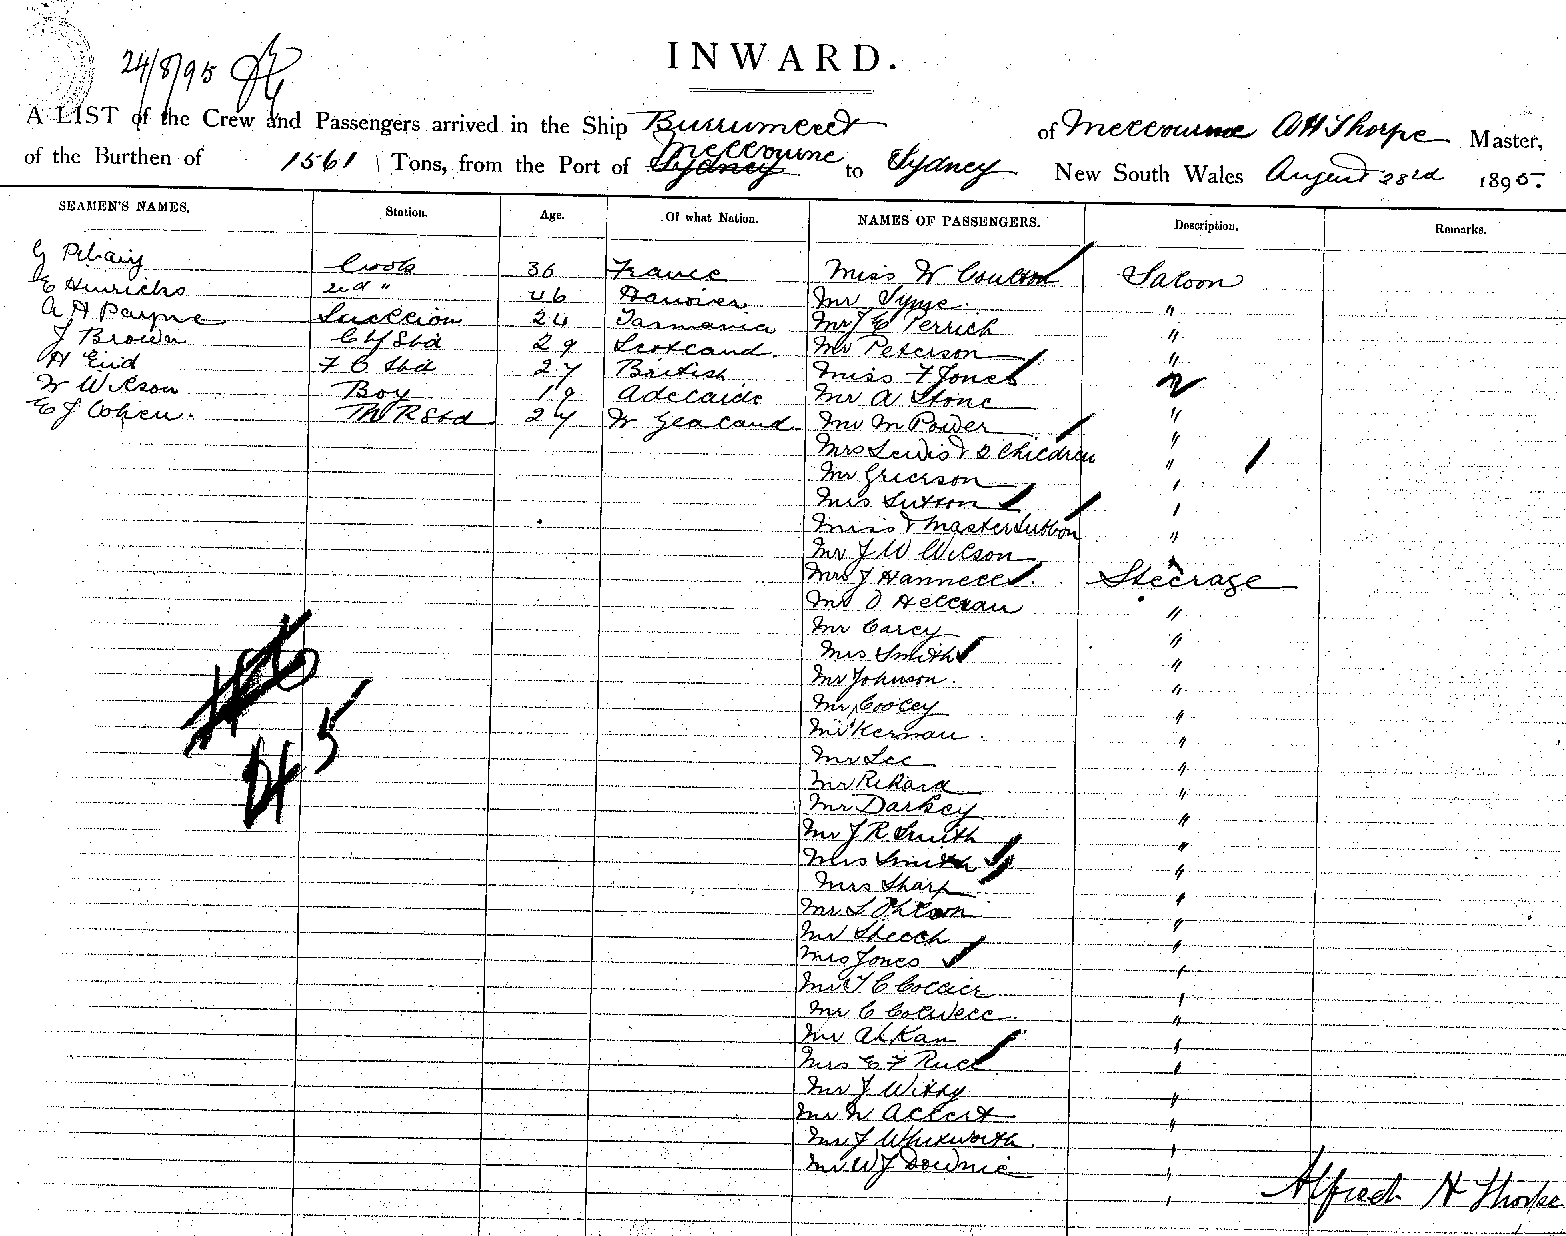 INWARD.
24/8/95
A LIST of the Crew and Passengers arrived in the Ship Burrumbeet of Melbourne A H Thorpe Master,
of the Burthen of 1561 Tons, from the Port of Sydney Melbourne to Sydney New South Wales August 23rd 1895.
SEAMEN'S NAMES. Station. Age. Of what Nation. NAMES OF PASSENGERS. Description. Remarks.
G Cook 36 France Miss W Coulson Saloon
E Hinrichs 2nd " 46 Hanover Mr Syme "
A H Payne Lucklion 24 Tasmania Mr J E Perrich "
J Brown Chf Std 29 Scotland Mr Peterson "
H Eiid F C Std 27 British Miss F Jones "
W Wilson Boy 19 Adelaide Mr A Stone "
E J Cohen. Th R Std 27 N Zealand Mr M Power "
Mrs Lewis & 2 Children "
Mr Grierson "
Mrs Sutton "
Miss & Master Sutton "
Mr J W Wilson "
Mrs J Hannell Steerage
Mr O Hellman "
Mr Carey "
Mrs Smith "
Mr Johnson "
Mr Cooley "
Mr Kernan "
Mr Lee "
Mr Rikard "
Mr Darkey "
Mr J R Smith "
Mrs Smith "
Mrs Sharp "
Mr S Ohlson "
Mr Sheech "
Mrs Jones "
Mr T C Collier "
Mr C Colwell "
Mr Ah Kan "
Mrs E F Ruck "
Mr J Witty "
Mr N Albert "
Mr J Whitworth "
Mr W J Downie "
45
Alfred H Thorpe